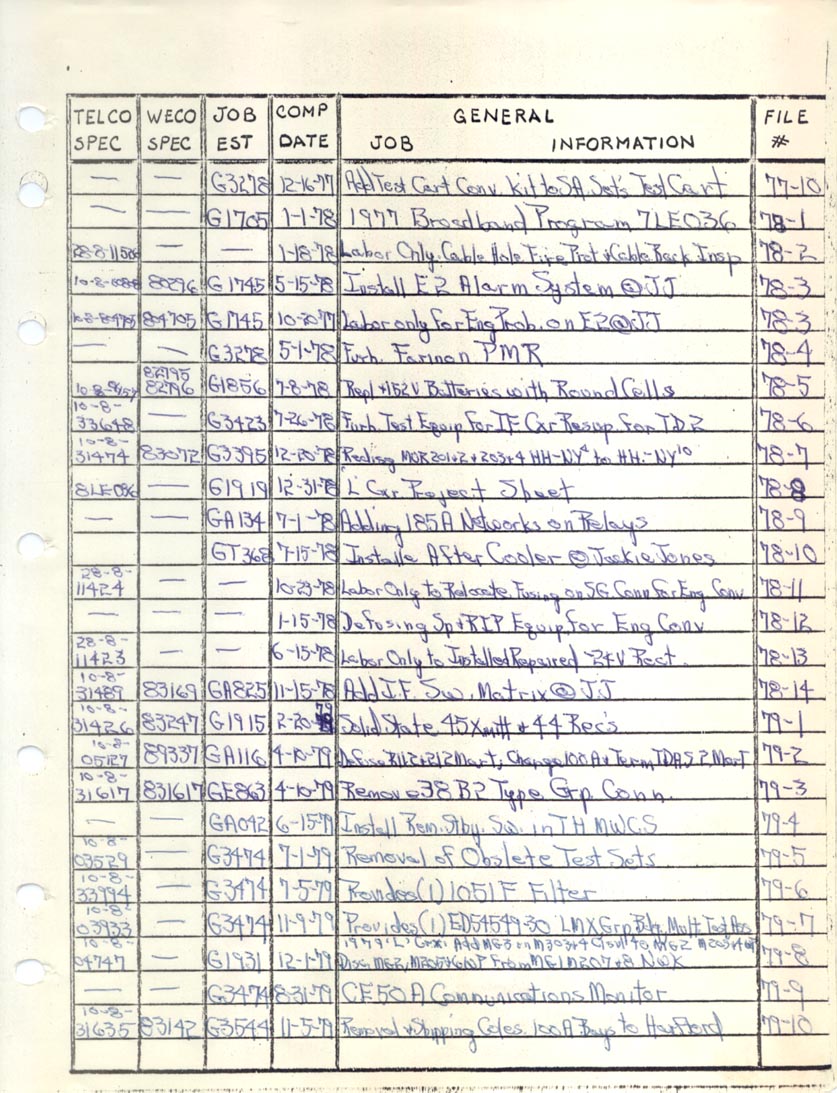 TELCO SPEC WECO SPEC JOB EST COMP DATE GENERAL JOB INFORMATION FILE #
— — G3278 12-16-77 Add Test Cart Conv. Kit to SA Set's Test Cart 77-10
— — G1705 1-1-78 1977 Broadband Program 7LE036 78-1
— — 1-18-78 Labor Only. Cable Hole Fire Prot & Cable Rack Insp 78-2
80296 G1745 5-15-78 Install E2 Alarm System @ JJ 78-3
84705 G1745 10-20-77 Labor only for Eng Prob. on E2 @ JJ 78-3
— — G3278 5-1-78 Furn. Farinon PMR 78-4
82795
82796 G1856 7-8-78 Repl 152V Batteries with Round Cells 78-5
10-8-
33648 — G3423 7-26-78 Furn. Test Equip for IF Cxr Resup. for TD2 78-6
10-8-
31474 83072 G3395 12-20-78 MGR 201+2+203+4 HH-NY4 to HH.-NY10 78-7
8LE036 — G1919 12-31-78 "L" Cxr Project Sheet 78-8
— — GA134 7-1-78 Adding 185A Networks on Relays 78-9
GT368 7-15-78 Installe After Cooler @ Jackie Jones 78-10
28-8-
11424 — — 10-23-78 Labor Only to Relocate Fusing on SG Conn for Eng Conv 78-11
— — — 1-15-78 Defusing Sp & RIP Equip for Eng Conv 78-12
28-8-
11423 — — 6-15-78 Labor Only to Installed Repaired -24V Rect. 78-13
10-8-
31489 83169 GA825 11-15-78 Add I.F. Sw. Matrix @ JJ 78-14
10-8-
31426 83247 G1915 2-20-79 Solid State 45 Xmitt & 44 Rec's 79-1
10-8-
05127 89337 GA116 4-10-79 Defuse R112+212 Mart, Change 100A Term TDAS 2 Mart 79-2
10-8-
31617 831617 GE863 4-10-79 Remove 38 B2 Type Grp Conn. 79-3
— — GA042 6-15-79 Install Rem. Stby. Sw. in TH MWCS 79-4
10-8-
03529 — G3474 7-1-79 Removal of Obslete Test Sets 79-5
10-8-
33994 — G3474 7-5-79 Provides (1) 1051F Filter 79-6
10-8-
03933 — G3474 11-9-79 Provides (1) ED54549-30 LMX Grp Bdg. Mult. Test Ass 79-7
10-8- 1979 "L" Cxr: Add MG3 on M303+4
04747 — G1931 12-1-79 Disc. MG2, From MG1 M207+8 NWK 79-8
— — G3474 8-31-79 CE50A Communications Monitor 79-9
10-8-
31635 83142 G3544 11-5-79 Removal & Shipping Coles. 100A Bays to Hartford 79-10